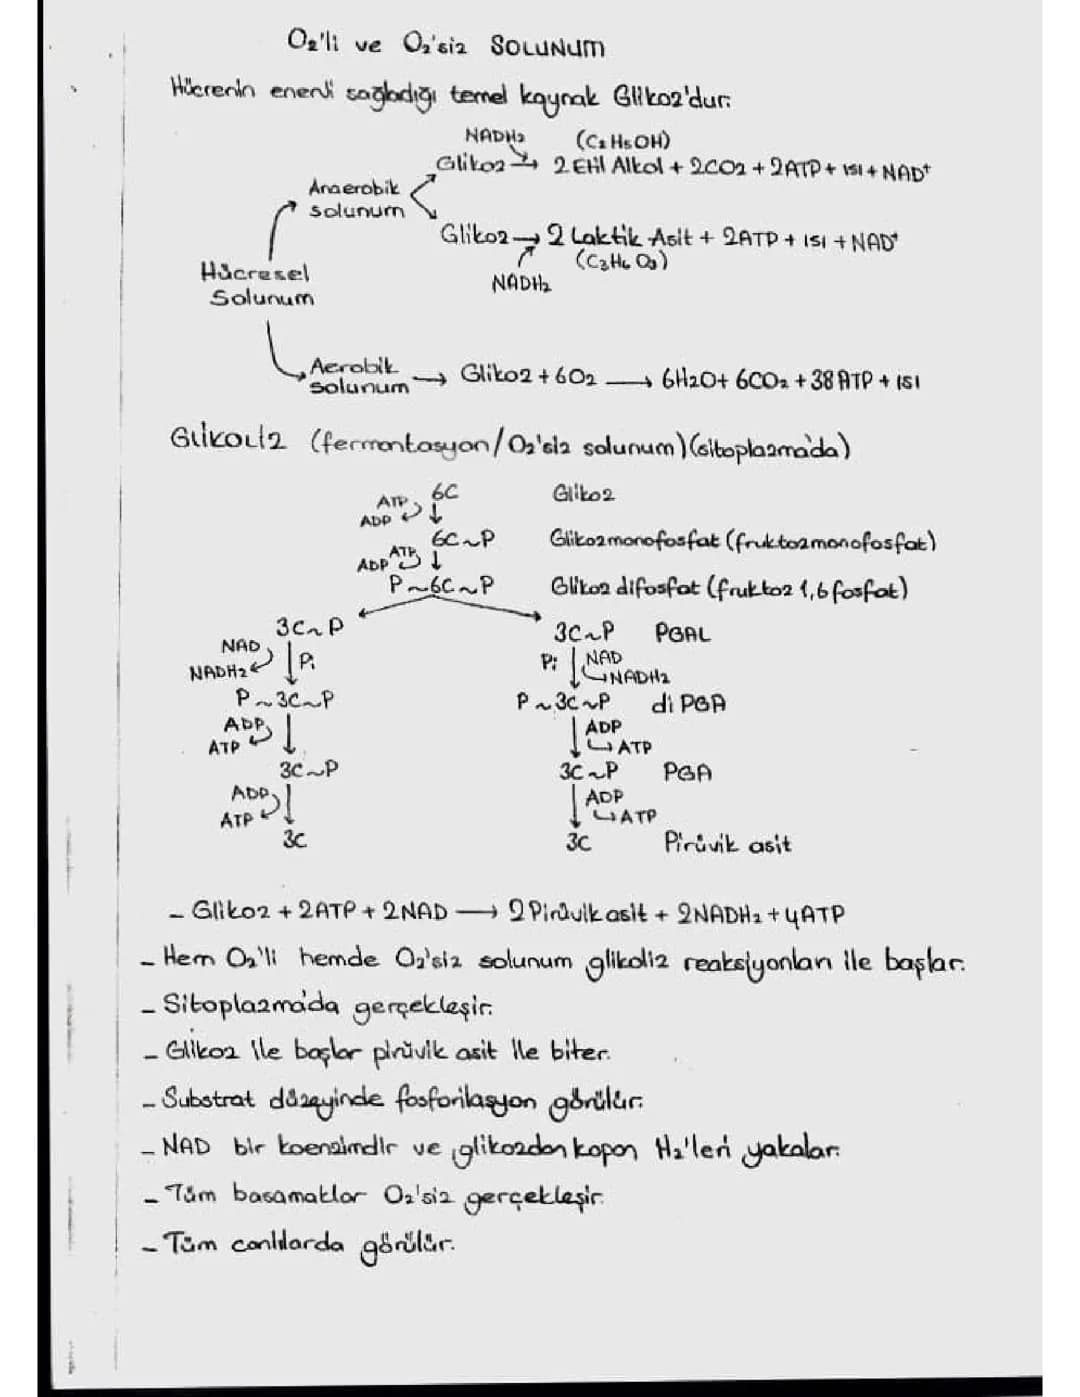 O₂'li ve O₂'siz SOLUNUM
Hücrenin enerji sağladığı temel kaynak Glikoz'dur.
NADH₂ (C₂H₅OH)
Glikoz → 2 Etil Alkol + 2CO₂ + 2ATP + ısı + NAD⁺
Anaerobik
solunum
Glikoz → 2 Laktik Asit + 2ATP + ısı + NAD⁺
(C₃H₆O₃)
NADH₂
Hücresel
Solunum
Aerobik
solunum → Glikoz + 6O₂ → 6H₂O + 6CO₂ + 38 ATP + ısı
GLİKOLİZ (fermantasyon/O₂'siz solunum) (sitoplazma'da)
ATP 6C Glikoz
ADP ↓
6C~P Glikozmonofosfat (fruktozmonofosfat)
ATP
ADP ↓
P~6C~P Glikoz difosfat (fruktoz 1,6 fosfat)
3C~P 3C~P PGAL
NAD Pi Pi NAD
NADH₂ NADH₂
P~3C~P P~3C~P di PGA
ADP ADP
ATP ATP
3C~P 3C~P PGA
ADP ADP
ATP ATP
3C 3C Pirüvik asit
- Glikoz + 2ATP + 2NAD → 2 Pirüvik asit + 2NADH₂ + 4ATP
- Hem O₂'li hemde O₂'siz solunum glikoliz reaksiyonları ile başlar.
- Sitoplazma'da gerçekleşir.
- Glikoz ile başlar pirüvik asit ile biter.
- Substrat düzeyinde fosforilasyon görülür.
- NAD bir koenzimdir ve glikozdan kopan H₂'leri yakalar.
- Tüm basamaklar O₂'siz gerçekleşir.
- Tüm canlılarda görülür.